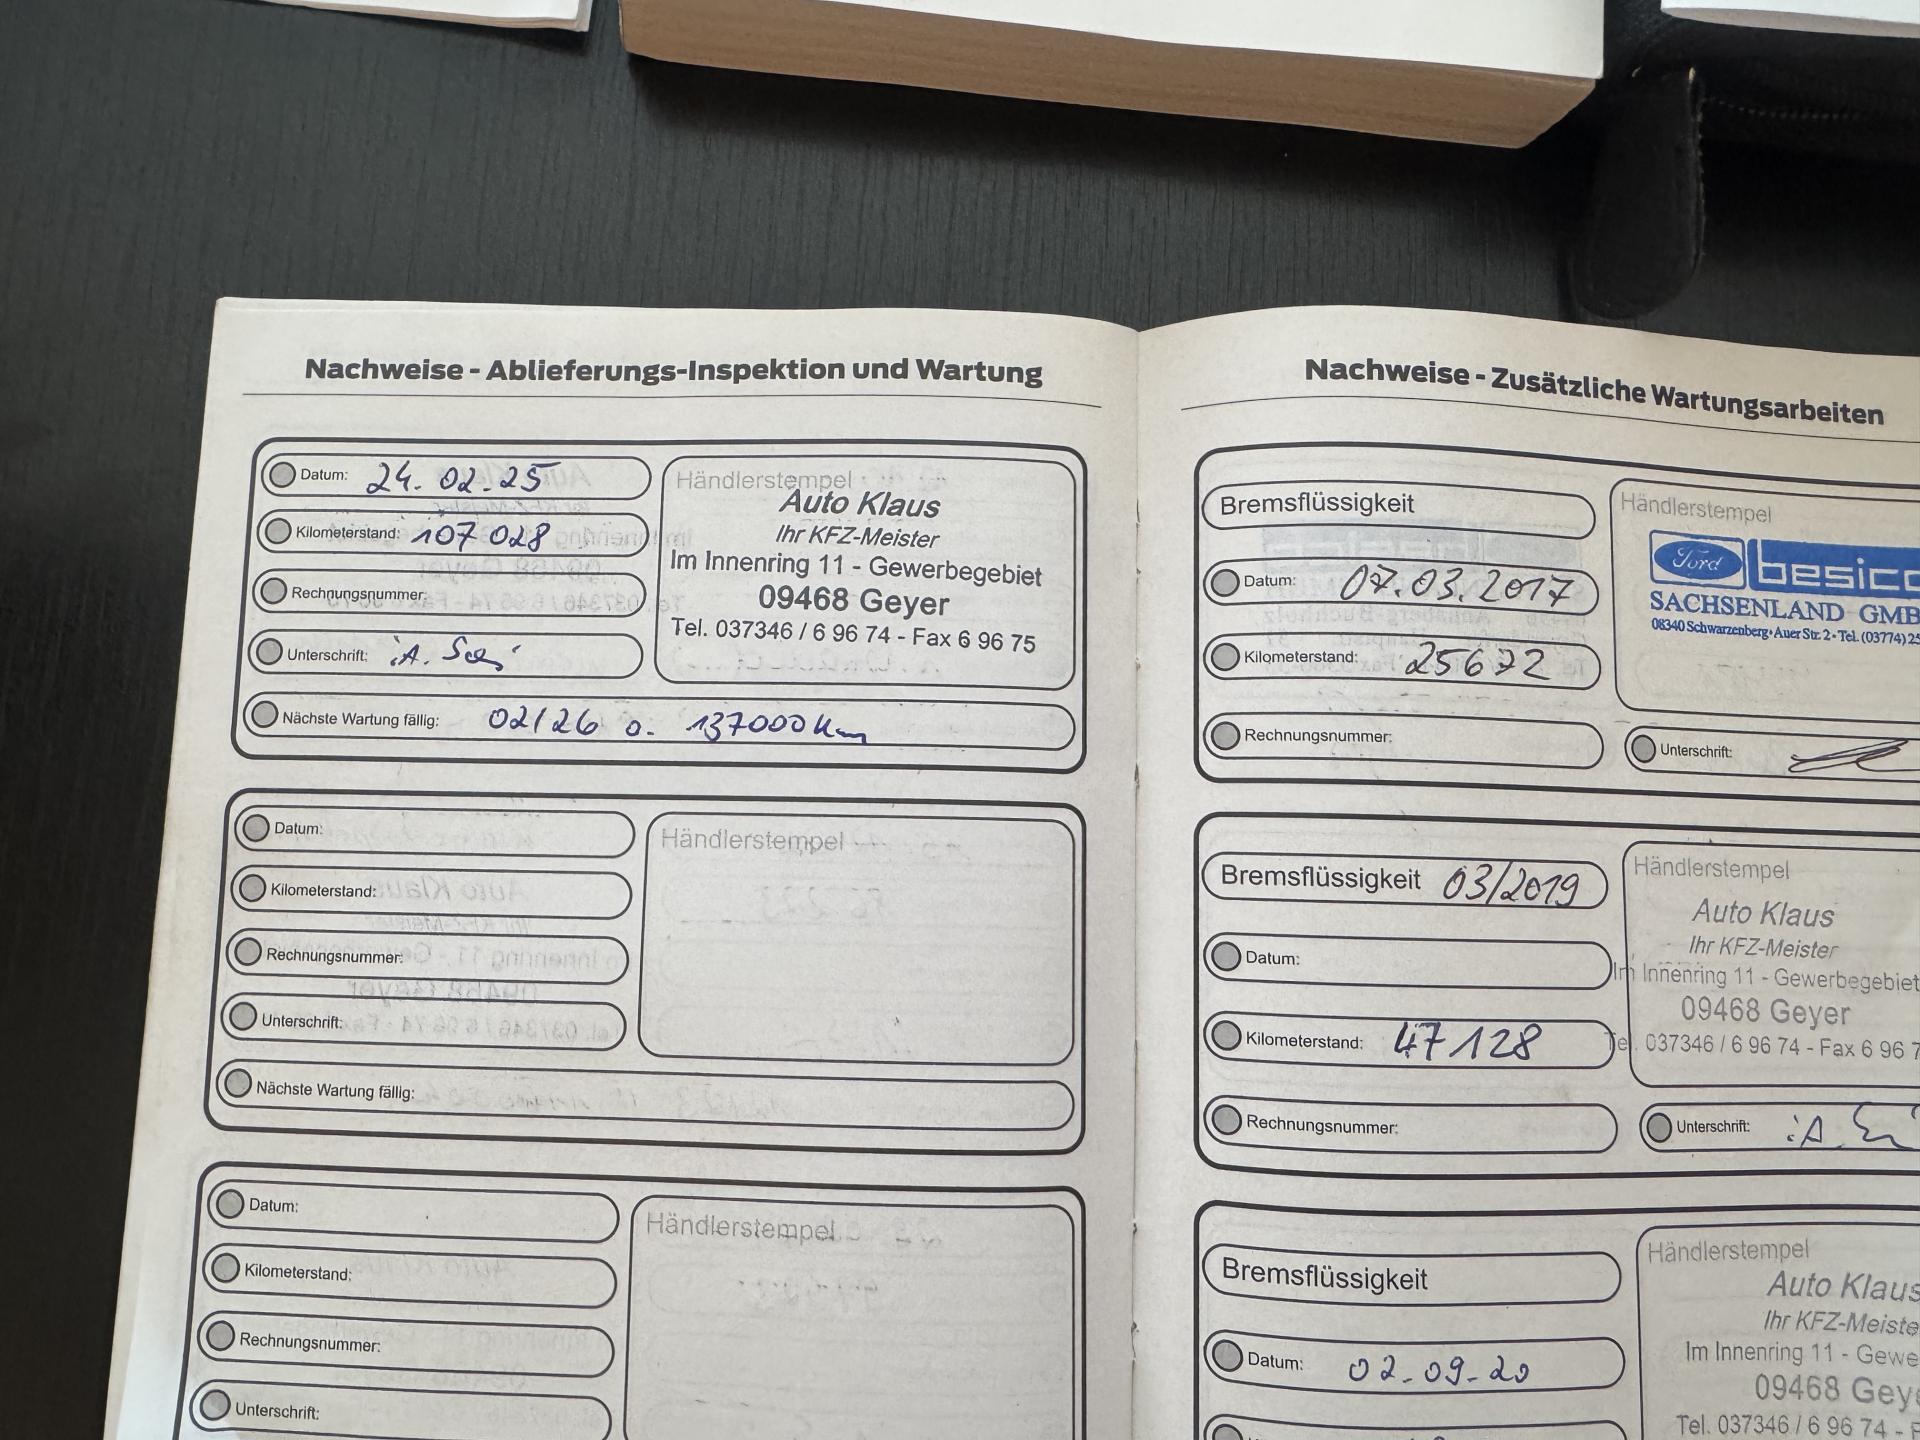 Nachweise - Ablieferungs-Inspektion und Wartung
Datum: 24.02.25
Kilometerstand: 107 028
Rechnungsnummer:
Unterschrift: i.A.
Nächste Wartung fällig: 02/26 o. 137000 km
Händlerstempel
Auto Klaus
Ihr KFZ-Meister
Im Innenring 11 - Gewerbegebiet
09468 Geyer
Tel. 037346 / 6 96 74 - Fax 6 96 75
Datum:
Kilometerstand:
Rechnungsnummer:
Unterschrift:
Nächste Wartung fällig:
Händlerstempel
Datum:
Kilometerstand:
Rechnungsnummer:
Unterschrift:
Händlerstempel
Nachweise - Zusätzliche Wartungsarbeiten
Bremsflüssigkeit
Datum: 07.03.2017
Kilometerstand: 25672
Rechnungsnummer:
Händlerstempel
Ford besico
SACHSENLAND GMB
08340 Schwarzenberg • Auer Str. 2 • Tel. (03774) 25
Unterschrift:
Bremsflüssigkeit 03/2019
Datum:
Kilometerstand: 47128
Rechnungsnummer:
Händlerstempel
Auto Klaus
Ihr KFZ-Meister
Im Innenring 11 - Gewerbegebiet
09468 Geyer
Tel. 037346 / 6 96 74 - Fax 6 96 7
Unterschrift: i.A.
Bremsflüssigkeit
Datum: 02.09.20
Händlerstempel
Auto Klaus
Ihr KFZ-Meiste
Im Innenring 11 - Gewe
09468 Gey
Tel. 037346 / 6 96 74 - F